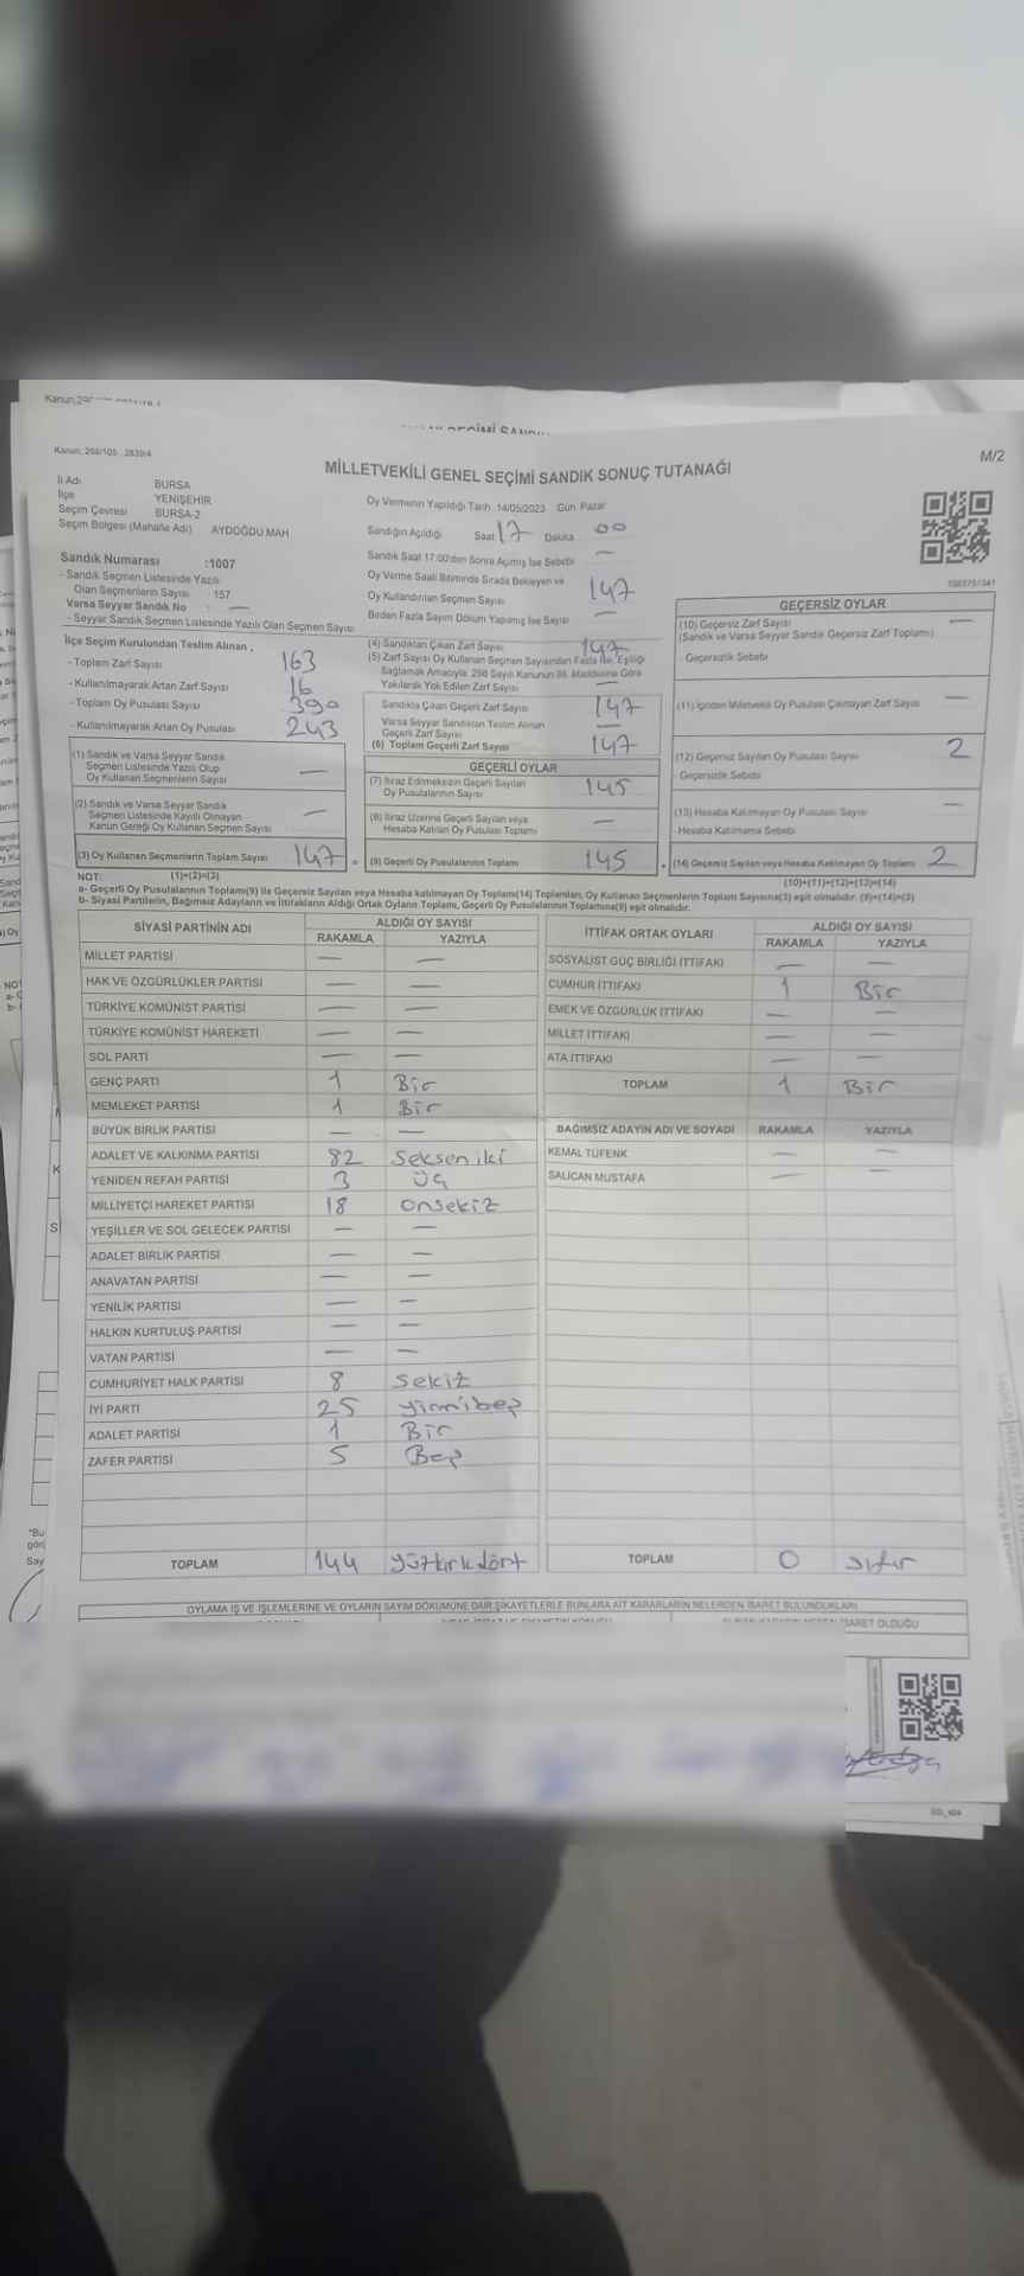 Kanun: 298/105 , 2839/4
M/2
MİLLETVEKİLİ GENEL SEÇİMİ SANDIK SONUÇ TUTANAĞI
İl Adı BURSA
İlçe YENİŞEHİR
Seçim Çevresi BURSA-2
Seçim Bölgesi (Mahalle Adı) AYDOĞDU MAH
Oy Vermenin Yapıldığı Tarih 14/05/2023 Gün Pazar
Sandığın Açıldığı Saat 17 Dakika 00
Sandık Saat 17:00'den Sonra Açılmış İse Sebebi —
Oy Verme Saati Bitiminde Sırada Bekleyen ve
Oy Kullandırılan Seçmen Sayısı 147
Birden Fazla Sayım Döküm Yapılmış İse Sayısı —
Sandık Numarası :1007
- Sandık Seçmen Listesinde Yazılı
Olan Seçmenlerin Sayısı 157
Varsa Seyyar Sandık No : —
- Seyyar Sandık Seçmen Listesinde Yazılı Olan Seçmen Sayısı
İlçe Seçim Kurulundan Teslim Alınan ,
- Toplam Zarf Sayısı 163
- Kullanılmayarak Artan Zarf Sayısı 16
- Toplam Oy Pusulası Sayısı 390
- Kullanılmayarak Artan Oy Pusulası 243
(1) Sandık ve Varsa Seyyar Sandık
Seçmen Listesinde Yazılı Olup
Oy Kullanan Seçmenlerin Sayısı —
(2) Sandık ve Varsa Seyyar Sandık
Seçmen Listesinde Kayıtlı Olmayan
Kanun Gereği Oy Kullanan Seçmen Sayısı —
(3) Oy Kullanan Seçmenlerin Toplam Sayısı 147
(4) Sandıktan Çıkan Zarf Sayısı 147
(5) Zarf Sayısı Oy Kullanan Seçmen Sayısından Fazla İse, Eşitliği
Sağlamak Amacıyla, 298 Sayılı Kanunun 98. Maddesine Göre
Yakılarak Yok Edilen Zarf Sayısı —
Sandıkta Çıkan Geçerli Zarf Sayısı 147
Varsa Seyyar Sandıktan Teslim Alınan
Geçerli Zarf Sayısı —
(6) Toplam Geçerli Zarf Sayısı 147
GEÇERLİ OYLAR
(7) İtiraz Edilmeksizin Geçerli Sayılan
Oy Pusulalarının Sayısı 145
(8) İtiraz Üzerine Geçerli Sayılan veya
Hesaba Katılan Oy Pusulası Toplamı —
(9) Geçerli Oy Pusulalarının Toplamı 145
GEÇERSİZ OYLAR
(10) Geçersiz Zarf Sayısı —
(Sandık ve Varsa Seyyar Sandık Geçersiz Zarf Toplamı)
- Geçersizlik Sebebi
(11) İçinden Milletvekili Oy Pusulası Çıkmayan Zarf Sayısı —
(12) Geçersiz Sayılan Oy Pusulası Sayısı 2
- Geçersizlik Sebebi
(13) Hesaba Katılmayan Oy Pusulası Sayısı —
- Hesaba Katılmama Sebebi
(14) Geçersiz Sayılan veya Hesaba Katılmayan Oy Toplamı 2
NOT: (1)+(2)=(3)
(10)+(11)+(12)+(13)=(14)
a- Geçerli Oy Pusulalarının Toplamı(9) ile Geçersiz Sayılan veya Hesaba katılmayan Oy Toplamı(14) Toplamları, Oy Kullanan Seçmenlerin Toplam Sayısına(3) eşit olmalıdır. (9)+(14)=(3)
b- Siyasi Partilerin, Bağımsız Adayların ve İttifakların Aldığı Ortak Oyların Toplamı, Geçerli Oy Pusulalarının Toplamına(9) eşit olmalıdır.
SİYASİ PARTİNİN ADI ALDIĞI OY SAYISI
RAKAMLA YAZIYLA
MİLLET PARTİSİ — —
HAK VE ÖZGÜRLÜKLER PARTİSİ — —
TÜRKİYE KOMÜNİST PARTİSİ — —
TÜRKİYE KOMÜNİST HAREKETİ — —
SOL PARTİ — —
GENÇ PARTİ 1 Bir
MEMLEKET PARTİSİ 1 Bir
BÜYÜK BİRLİK PARTİSİ — —
ADALET VE KALKINMA PARTİSİ 82 Seksen iki
YENİDEN REFAH PARTİSİ 3 Üç
MİLLİYETÇİ HAREKET PARTİSİ 18 onsekiz
YEŞİLLER VE SOL GELECEK PARTİSİ — —
ADALET BİRLİK PARTİSİ — —
ANAVATAN PARTİSİ — —
YENİLİK PARTİSİ — —
HALKIN KURTULUŞ PARTİSİ — —
VATAN PARTİSİ — —
CUMHURİYET HALK PARTİSİ 8 sekiz
İYİ PARTİ 25 yirmibeş
ADALET PARTİSİ 1 Bir
ZAFER PARTİSİ 5 Beş
TOPLAM 144 yüzkırkdört
İTTİFAK ORTAK OYLARI ALDIĞI OY SAYISI
RAKAMLA YAZIYLA
SOSYALİST GÜÇ BİRLİĞİ İTTİFAKI — —
CUMHUR İTTİFAKI 1 Bir
EMEK VE ÖZGÜRLÜK İTTİFAKI — —
MİLLET İTTİFAKI — —
ATA İTTİFAKI — —
TOPLAM 1 Bir
BAĞIMSIZ ADAYIN ADI VE SOYADI RAKAMLA YAZIYLA
KEMAL TÜFENK — —
SALİCAN MUSTAFA — —
TOPLAM 0 sıfır
OYLAMA İŞ VE İŞLEMLERİNE VE OYLARIN SAYIM DÖKÜMÜNE DAİR ŞİKAYETLERLE BUNLARA AİT KARARLARIN NELERDEN İBARET BULUNDUKLARI